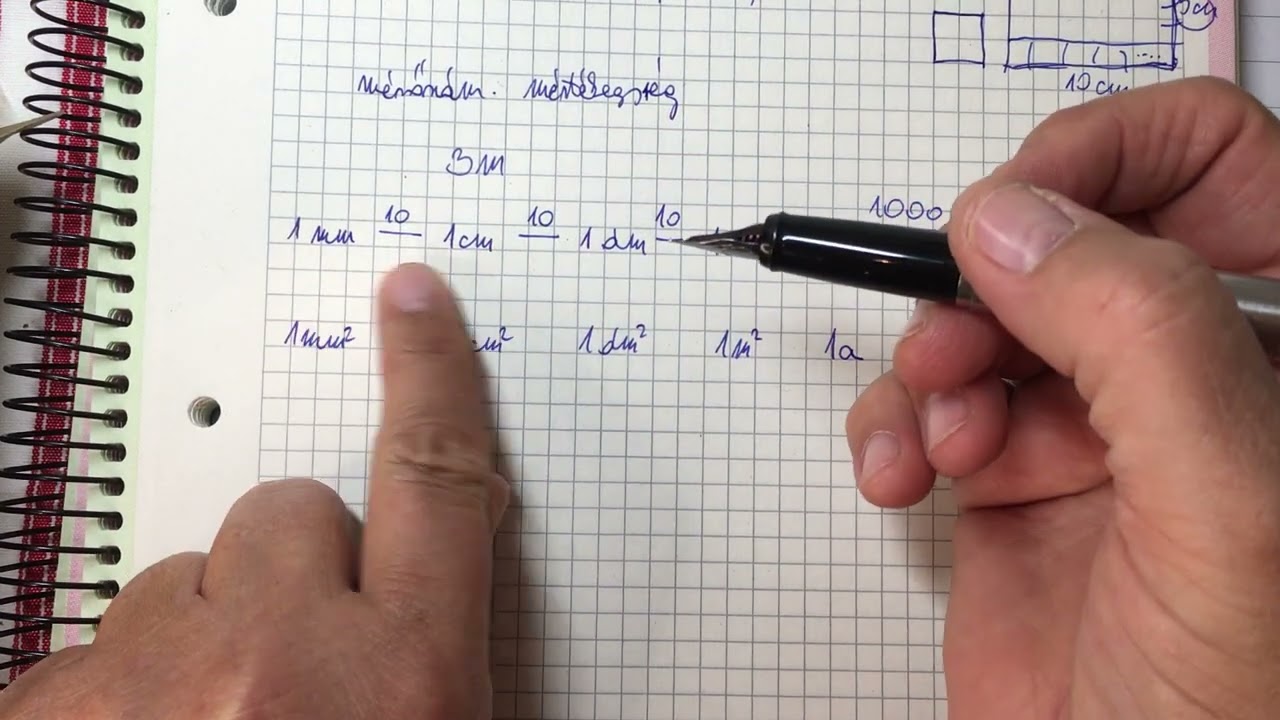 10 cm
mérőszám. mértékegység
3m
1 mm 10 1cm 10 1 dm 10 1000
1mm² m² 1 dm² 1m² 1a